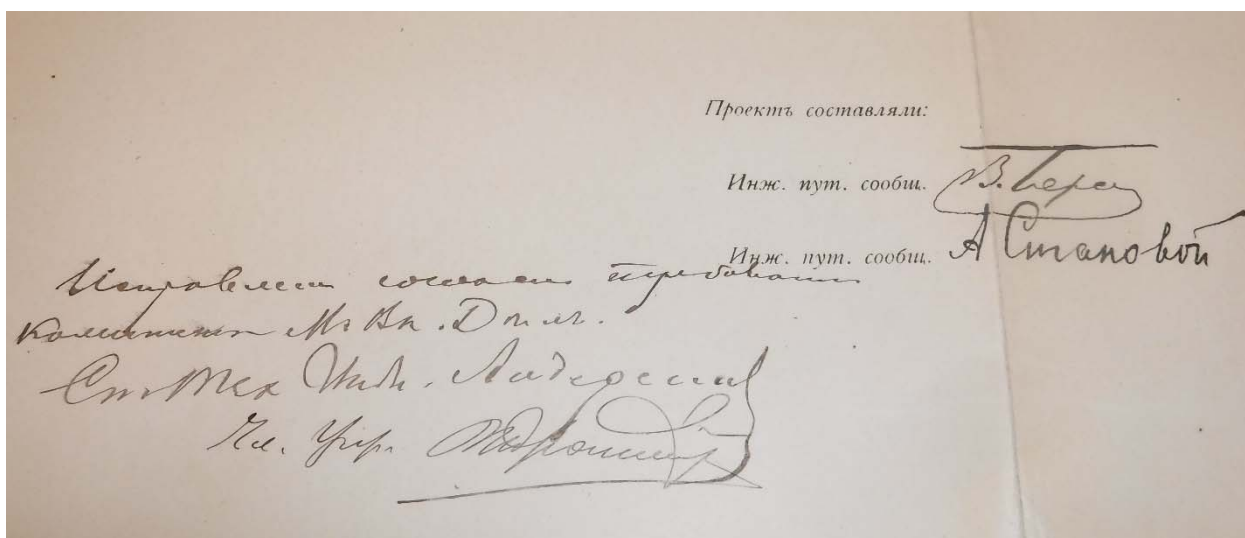 Проектъ составляли:
Инж. пут. сообщ. В. Бера
Инж. пут. сообщ. А Становой
Исправлены согласно требованію
Комитета М Вн. Дѣлъ.
Ст. Тех Инж. Андерсенъ
Чл. Упр.